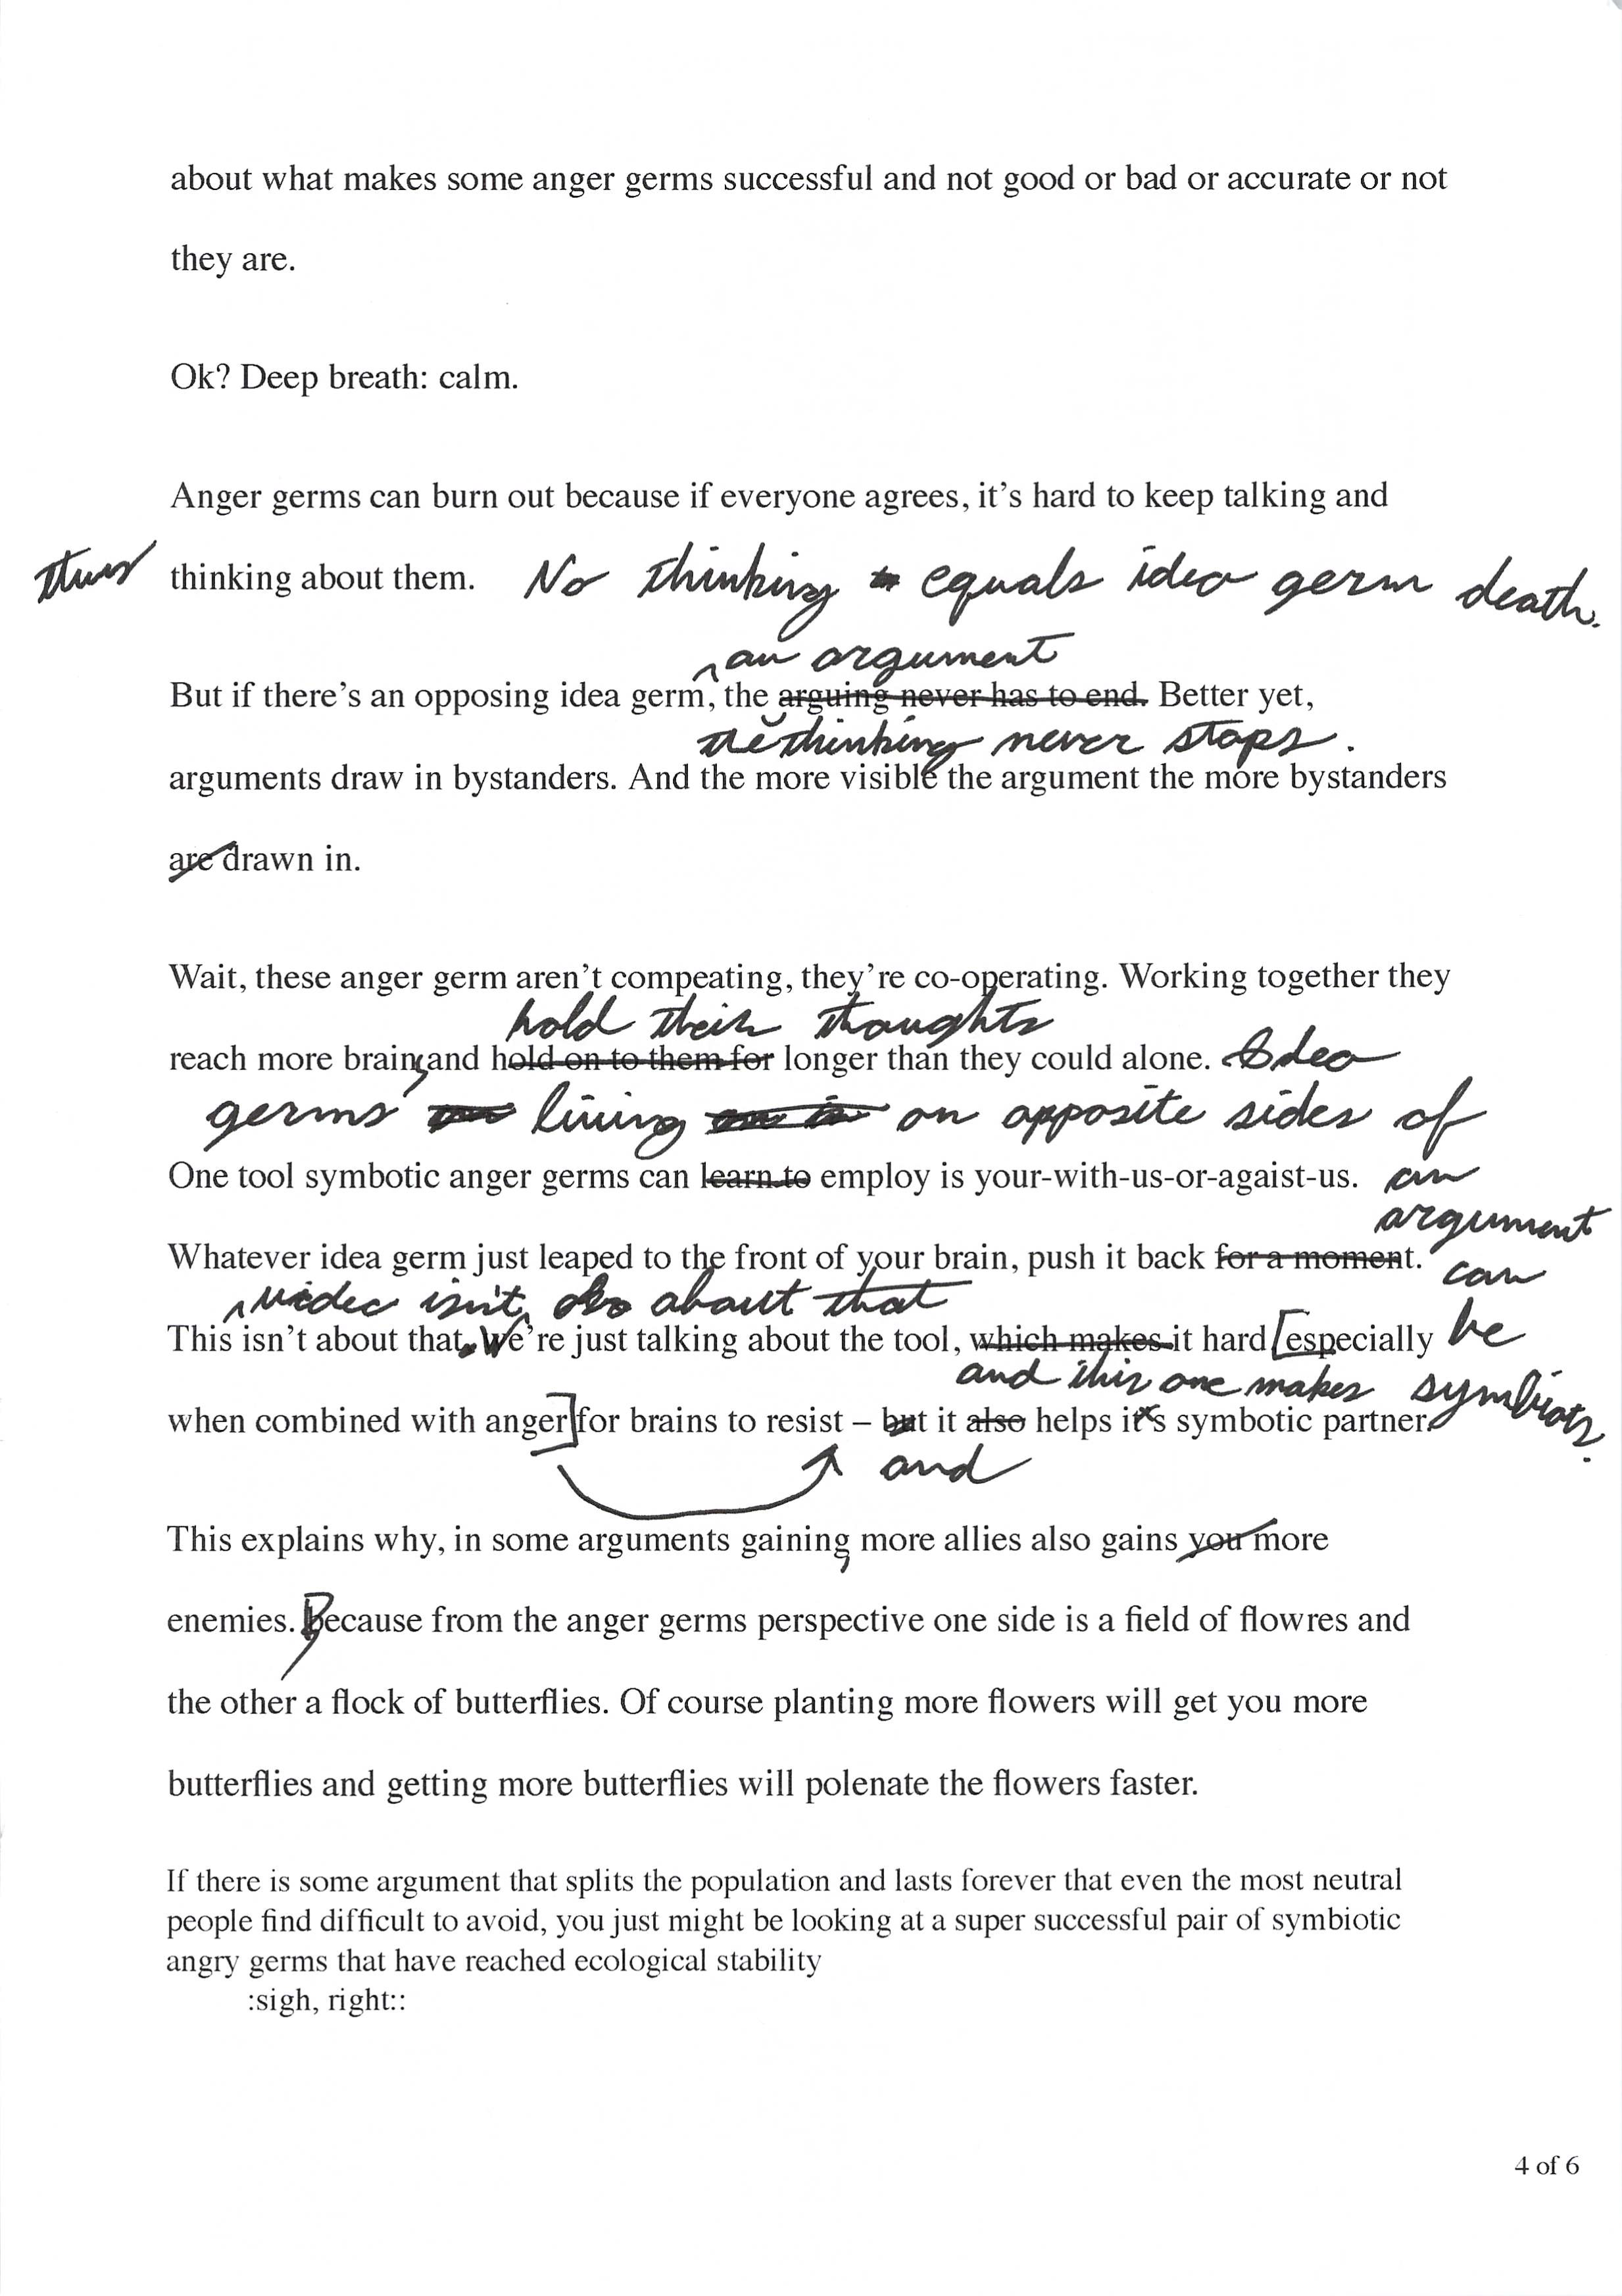 about what makes some anger germs successful and not good or bad or accurate or not
they are.
Ok? Deep breath: calm.
Anger germs can burn out because if everyone agrees, it's hard to keep talking and
thinking about them. No thinking equals idea germ death.
an argument
But if there's an opposing idea germ, the arguing never has to end. Better yet,
the thinking never stops.
arguments draw in bystanders. And the more visible the argument the more bystanders
are drawn in.
Wait, these anger germ aren't compeating, they're co-operating. Working together they
hold their thoughts
reach more brains, and hold on to them for longer than they could alone. Idea
germs living on opposite sides of
One tool symbotic anger germs can learn to employ is your-with-us-or-agaist-us. an
argument
Whatever idea germ just leaped to the front of your brain, push it back for a moment. can
video isn't about that
This isn't about that. We're just talking about the tool, which makes it hard [especially be
and this one makes symbiots.
when combined with anger] for brains to resist – but it also helps it's symbotic partner.
and
This explains why, in some arguments gaining, more allies also gains you more
enemies. Because from the anger germs perspective one side is a field of flowres and
the other a flock of butterflies. Of course planting more flowers will get you more
butterflies and getting more butterflies will polenate the flowers faster.
If there is some argument that splits the population and lasts forever that even the most neutral
people find difficult to avoid, you just might be looking at a super successful pair of symbiotic
angry germs that have reached ecological stability
:sigh, right::
4 of 6